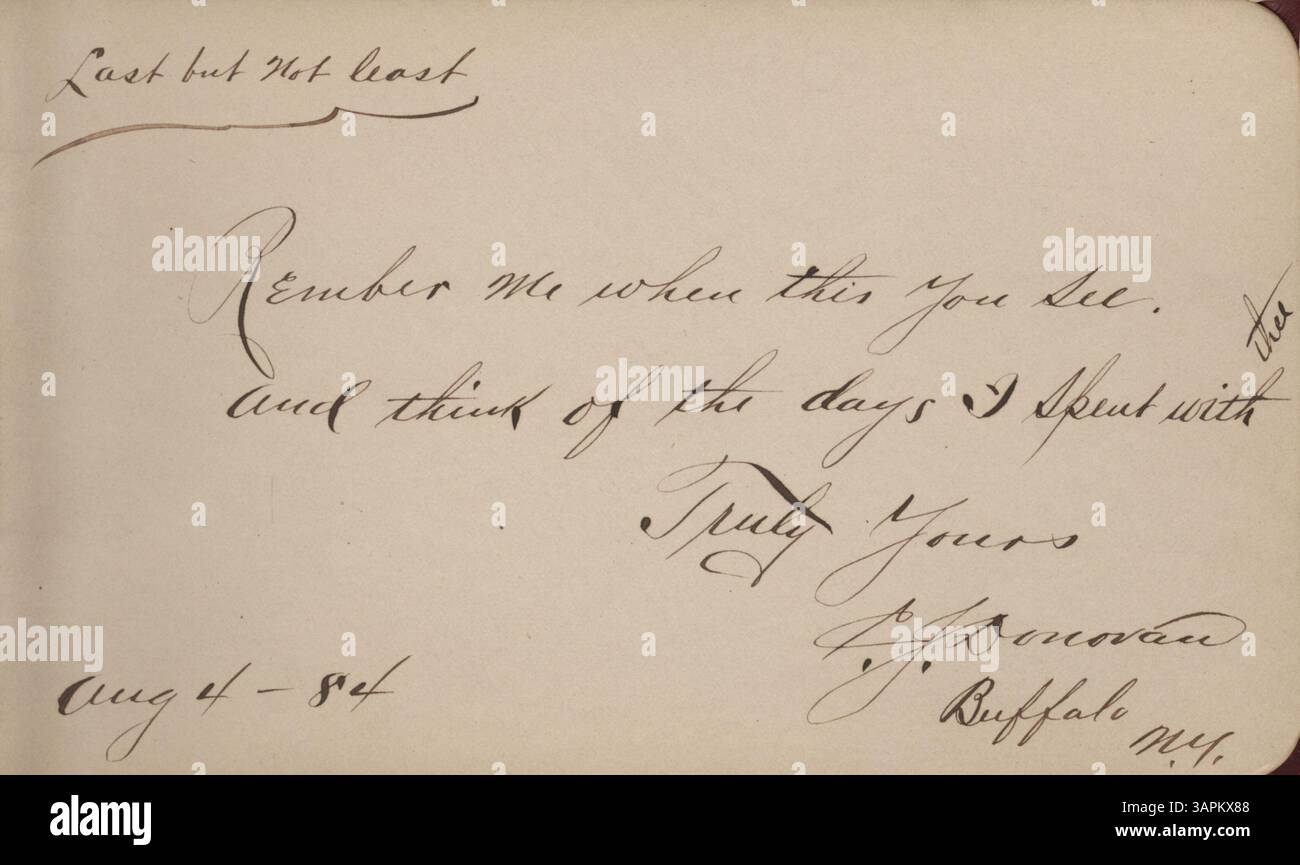 Last but not least
Rember me when this you see.
and think of the days I spent with
thee
Truly Yours
J. Donovan
Buffalo
N.Y.
Aug 4 - 84
alamy
Image ID: 3APKX88
www.alamy.com